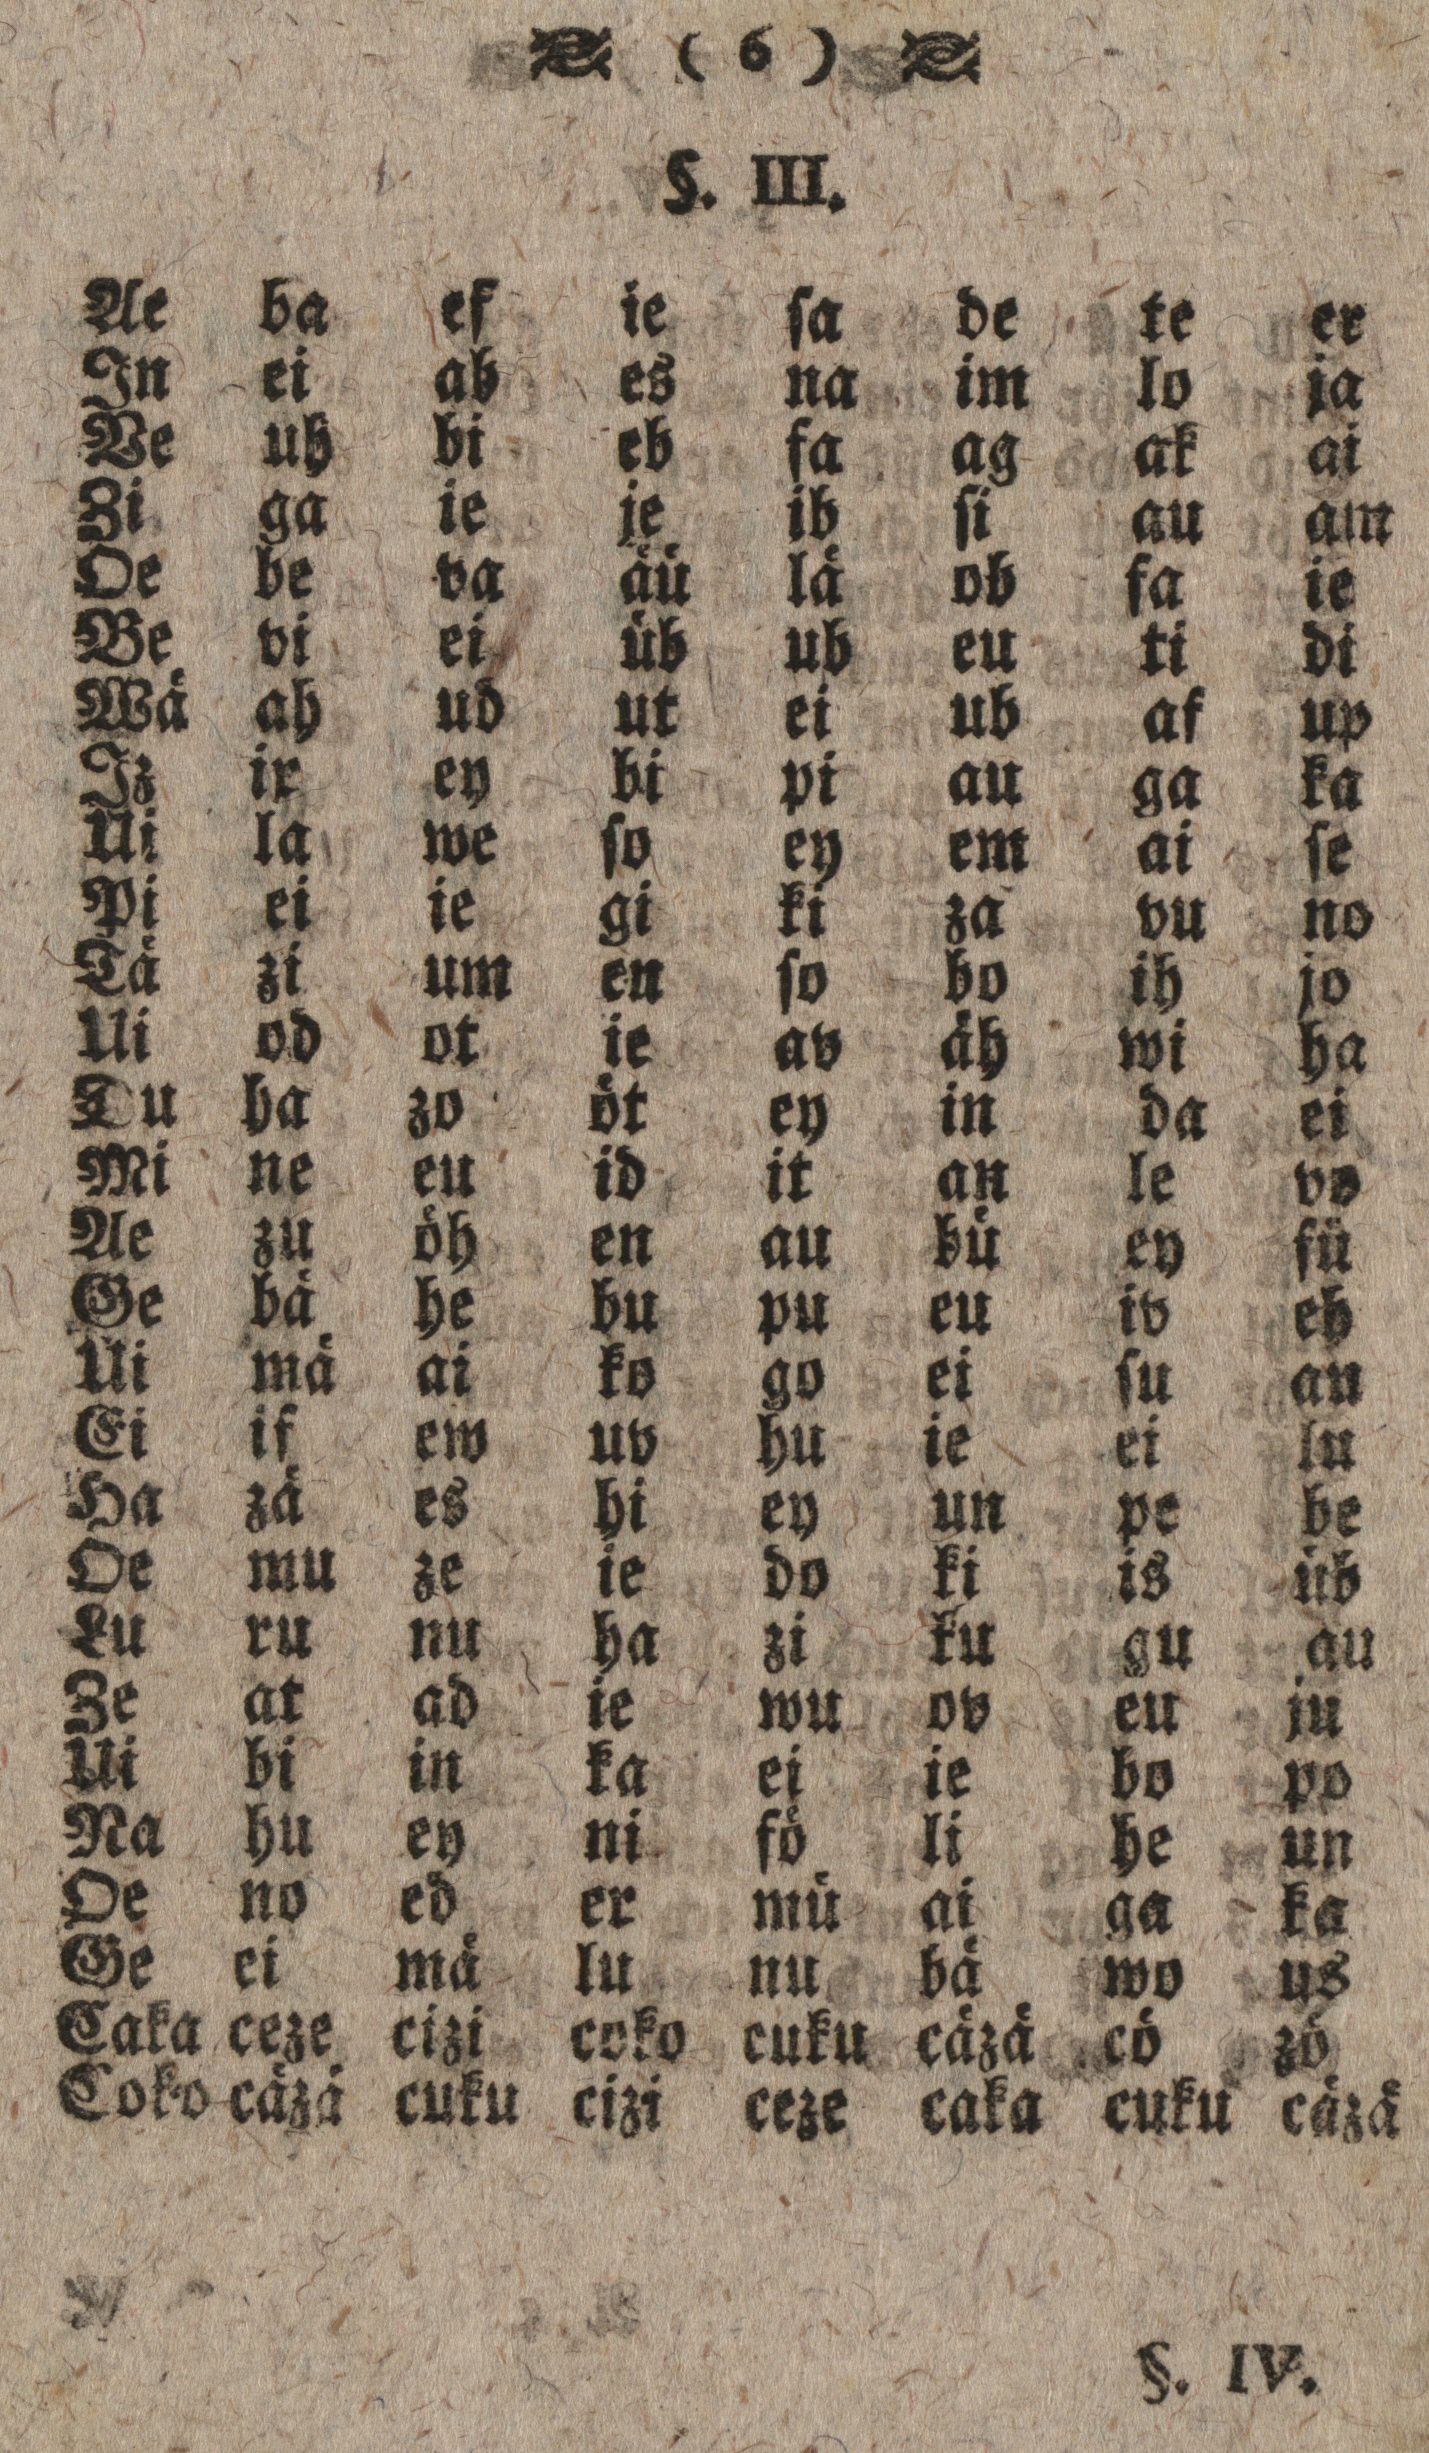 ( 6 )
§. III.
Ae ba ef ie ſa de te er
In ei ab es na im lo ja
Ve uh bi eb fa ag ak ai
Zi ga ie je ib ſi au am
Oe be va aͤuͤ laͤ ob fa ie
Be vi ei uͤb ub eu ti di
Waͤ ah ud ut ei ub af up
Iz ir ey bi pi au ga ka
Ui la we ſo ey em ai ſe
Pi ei ie gi ki za vu no
Taͤ zi um en ſo bo ih jo
Ui od ot ie av aͤh wi ha
Du ha zo oͤt ey in da ei
Mi ne eu id it an le vo
Ae zu oͤh en au buͤ ey fuͤ
Ge baͤ he bu pu eu iv eh
Ui maͤ ai ko go ei ſu an
Ei if ew uv hu ie ei lu
Ha zaͤ es hi ey un pe be
Oe mu ze ie do ki is uͤb
Lu ru nu ha zi ku gu au
Ze at ad ie wu ov eu ju
Ui bi in ka ei ie bo po
Na hu ey ni foͤ li he un
Oe no ed er muͤ ai ga ka
Ge ei maͤ lu nu baͤ wo us
Caka ceze cizi coko cuku caͤzaͤ coͤ zoͤ
Coko caͤzaͤ cuku cizi ceze caka cuku caͤzaͤ
§. IV.